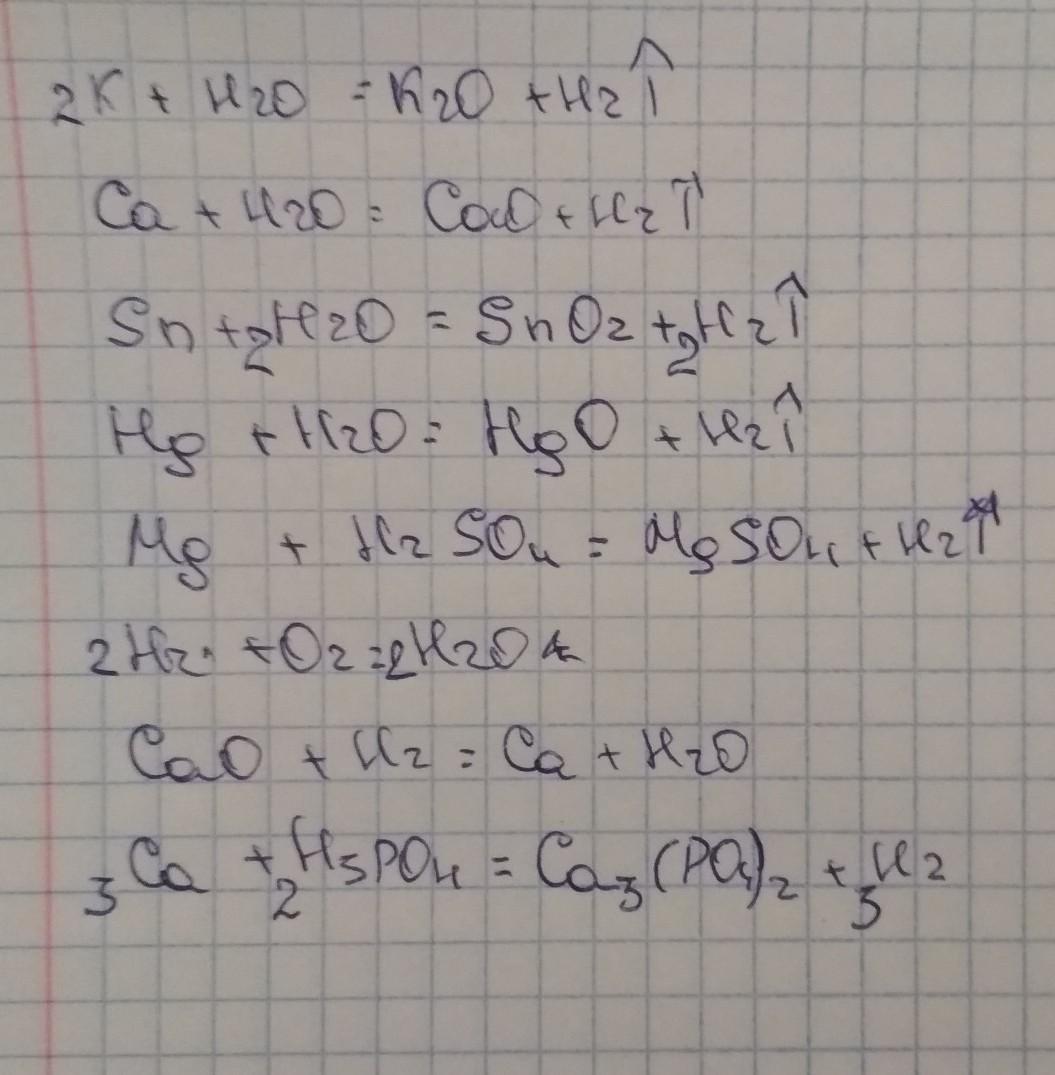 2K + H2O = K2O + H2↑
Ca + H2O = CaO + H2↑
Sn + 2H2O = SnO2 + 2H2↑
Hg + H2O = HgO + H2↑
Mg + H2SO4 = MgSO4 + H2↑
2H2 + O2 = 2H2O
CaO + H2 = Ca + H2O
3Ca + 2H3PO4 = Ca3(PO4)2 + 3H2